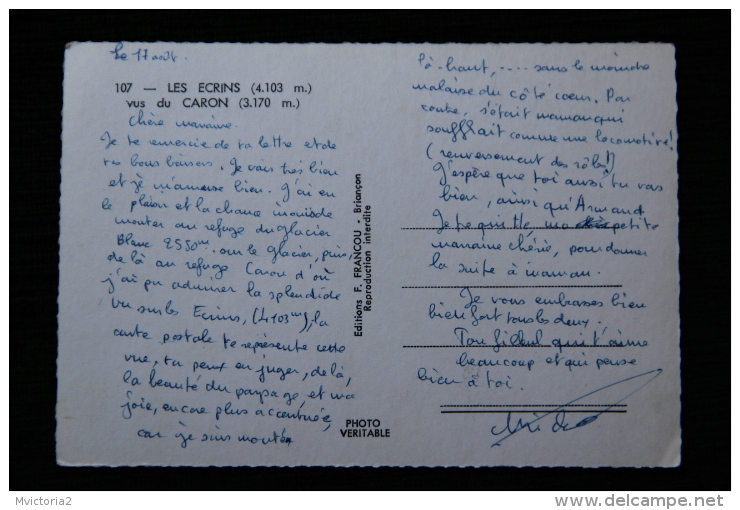 Le 17 août.
107 — LES ECRINS (4.103 m.)
vus du CARON (3.170 m.)
Chère marraine.
Je te remercie de ta lettre et de
tes bons baisers. Je vais très bien
et je m'amuse bien. J'ai eu
le plaisir et la chance inouïs de
monter au refuge du Glacier
Blanc 2550m sur le glacier, puis,
de là au refuge Caron d'où
j'ai pu admirer la splendide
vue sur les Ecrins, (4103m), la
carte postale te représente cette
vue, tu peux en juger, de là,
la beauté du paysage, et ma
joie, encore plus accentuée,
car je suis monté
là-haut, .... sans le moindre
malaise du côté coeur. Par
contre, c'était maman qui
soufflait comme une locomotive!
(renversement des rôles!)
J'espère que toi aussi tu vas
bien, ainsi qu'Armand
Je te quitte, ma petite
marraine chérie, pour donner
la suite à maman.
Je vous embrasse bien
bien fort tous les deux.
Ton filleul qui t'aime
beaucoup et qui pense
bien à toi.
Editions F. FRANCOU - Briançon
Reproduction interdite
PHOTO
VERITABLE
Mvictoria2
www.delcampe.net